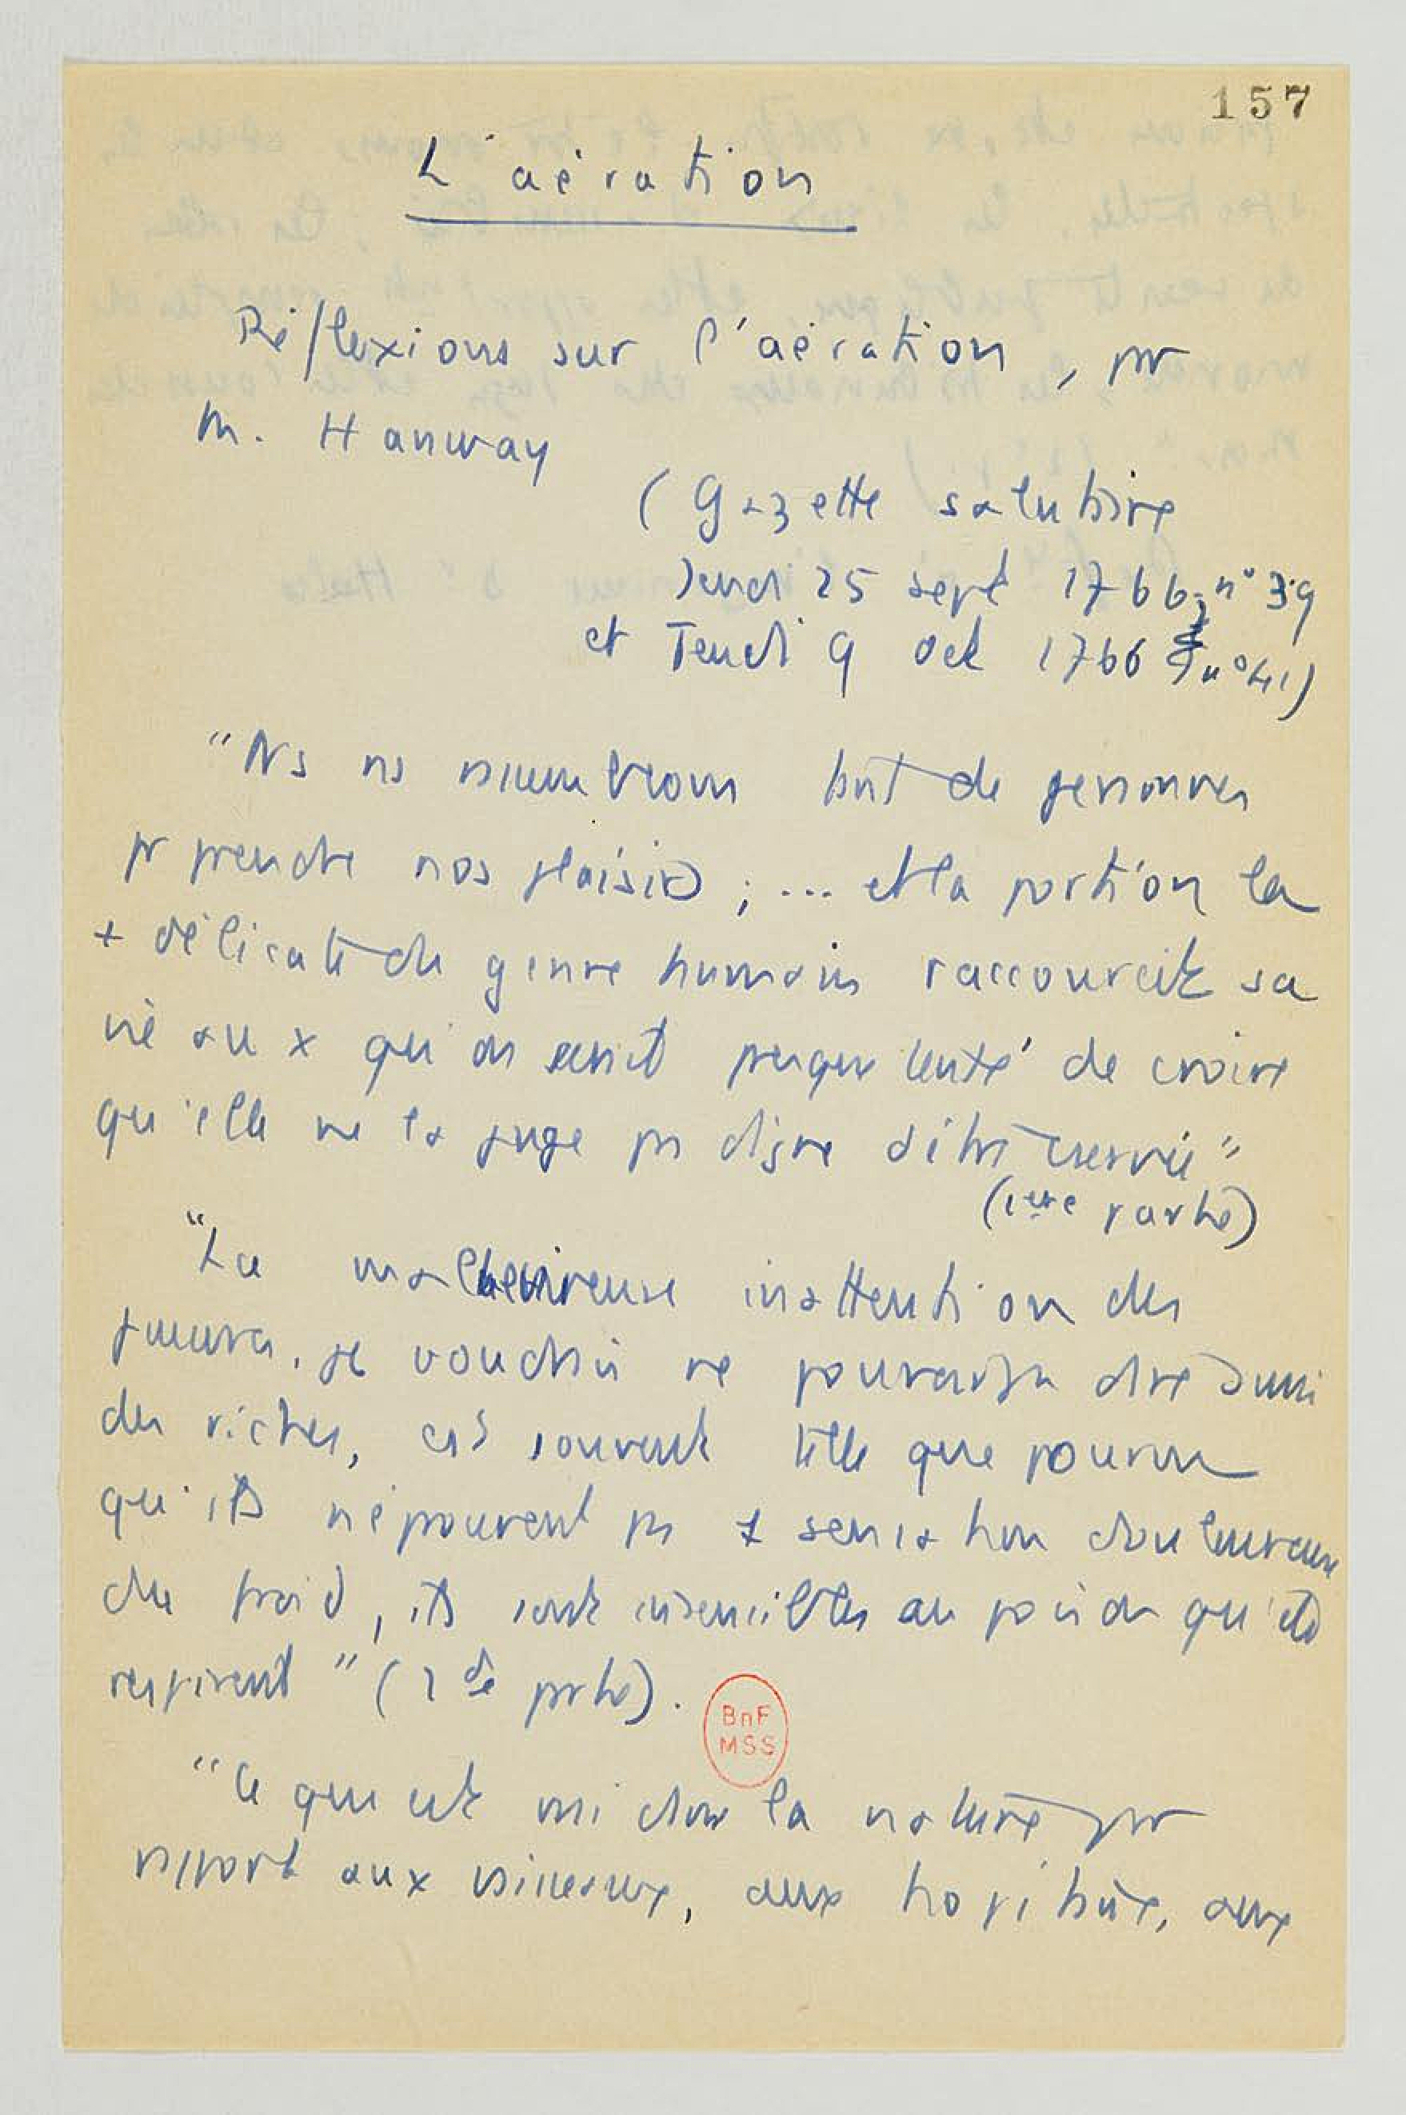 157
L'aération
Réflexions sur l'aération, pr
M. Hanway
(Gazette salutaire
Jeudi 25 sept 1766, n° 39
et Jeudi 9 oct 1766 n° 41)
"Ns ns rassemblons tant de personnes
pr prendre nos plaisirs ; ... et la portion la
+ délicate du genre humain raccourcit sa
vie au x qu'on serait presque tenté de croire
qu'elle ne la juge pas digne d'être conservée"
(1ère partie)
"La malheureuse inattention des
pauvres, je voudrais ne pouvoir pas dire aussi
des riches, est souvent telle que pourvu
qu'ils n'éprouvent pas de sensation douloureuse
du froid, ils sont insensibles au poison qu'ils
respirent" (2de partie).
BnF
MSS
"Ce qui est vrai dans la nature par
rapport aux vaisseaux, aux hôpitaux, aux